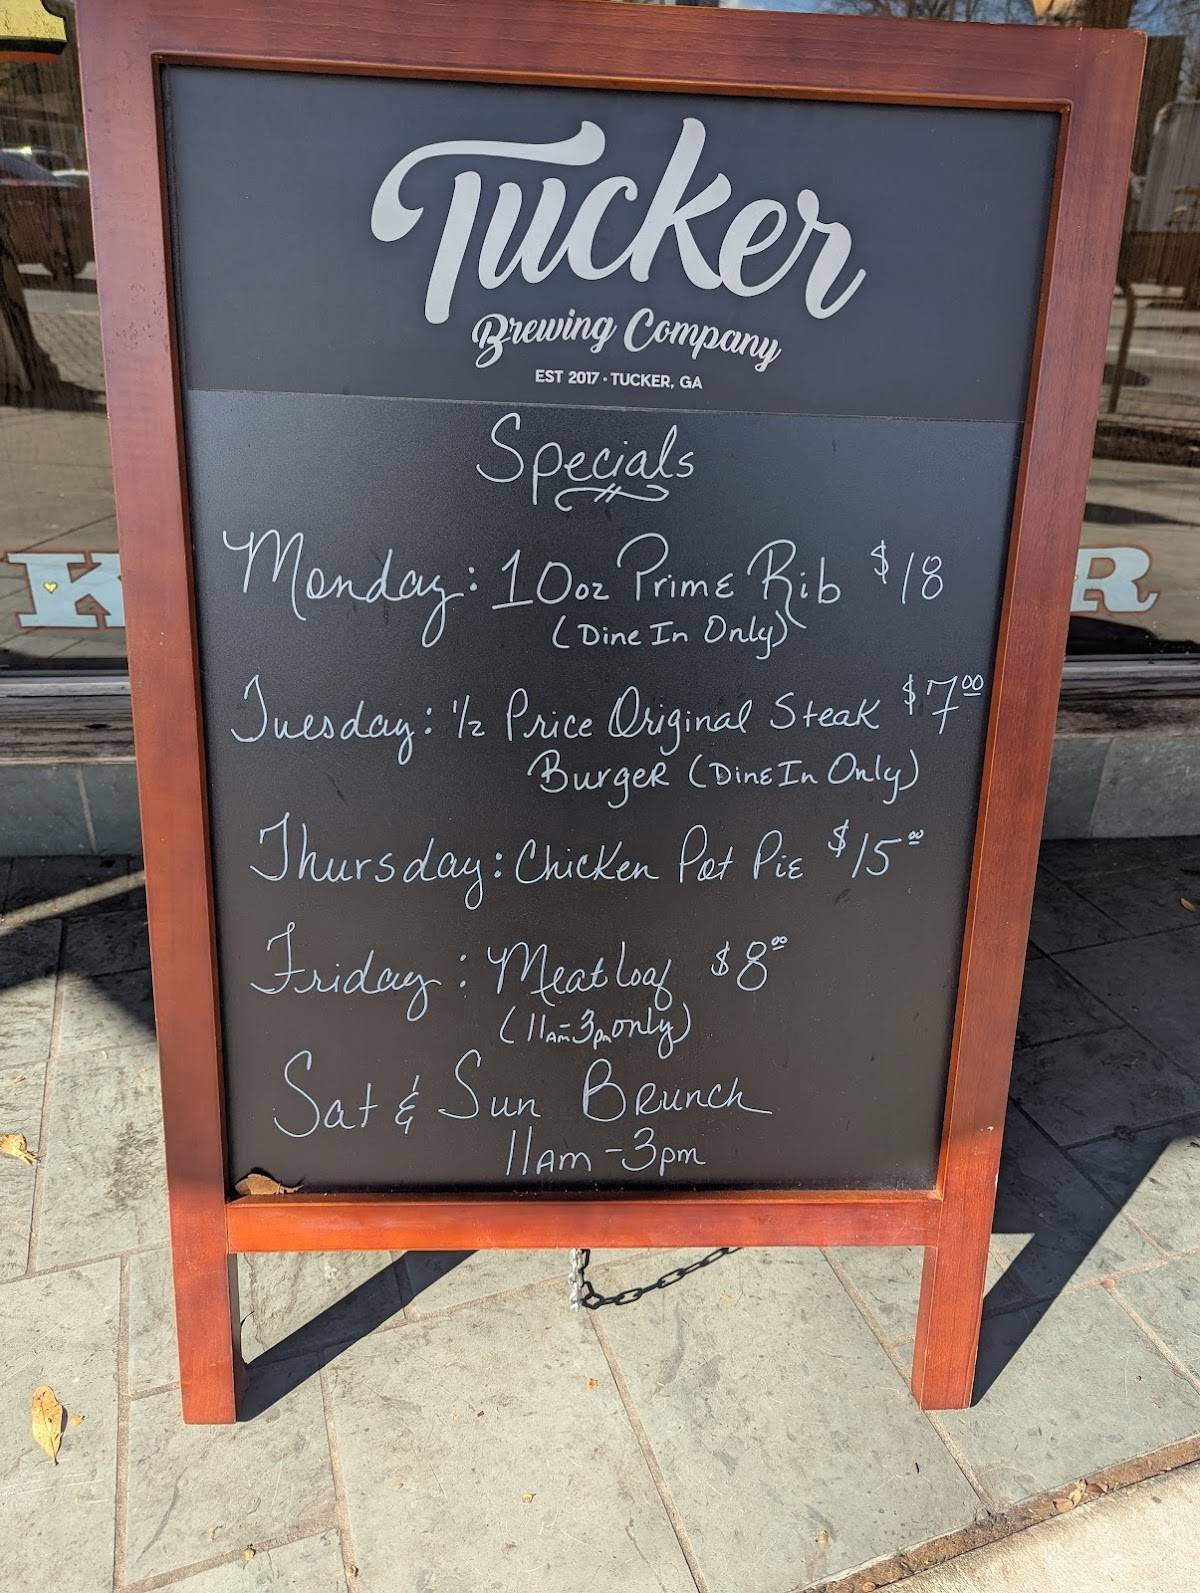 Tucker
Brewing Company
EST 2017 · TUCKER, GA
Specials
Monday: 10oz Prime Rib $18
(Dine In Only)
Tuesday: 1/2 Price Original Steak $7.00
Burger (Dine In Only)
Thursday: Chicken Pot Pie $15.00
Friday: Meatloaf $8.00
(11am-3pm only)
Sat & Sun Brunch
11am-3pm
K
R